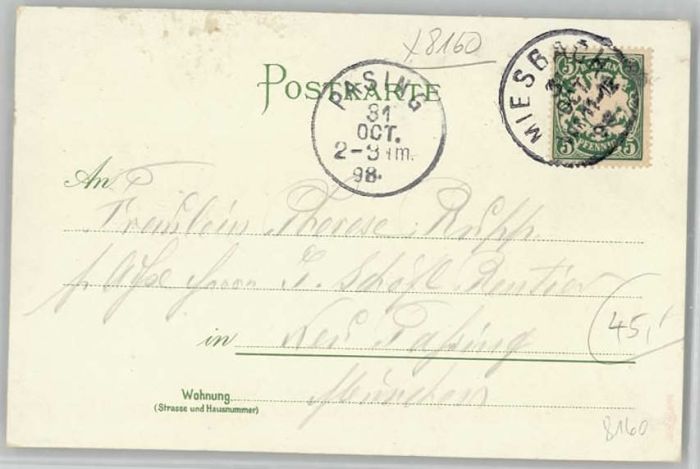 x8160
POSTKARTE
PASING
31
OCT.
2-3 Nm.
98.
MIESBACH
BAYERN
5 5
PFENNIG
An
Fräulein Therese Rupp
Herrn Rentier
45,-
in Neu Pasing
Wohnung
(Strasse und Hausnummer)
München
8160